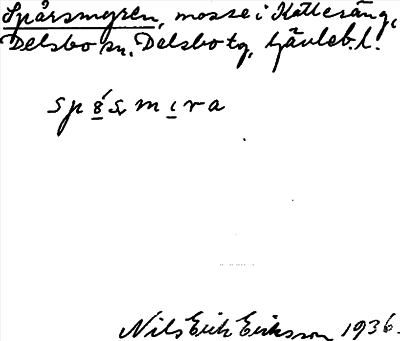 Spårsmyren, mosse i Källeräng,
Delsbo sn. Delsbo tg, Gävleb. l.
Nils Erik Eriksson 1936.